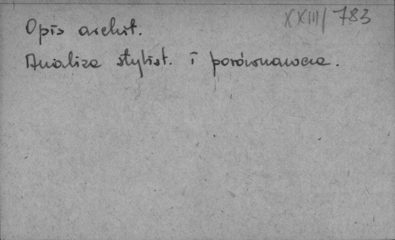 XXIII/783
Opis archit.
Analiza stylist. i porównawcza.